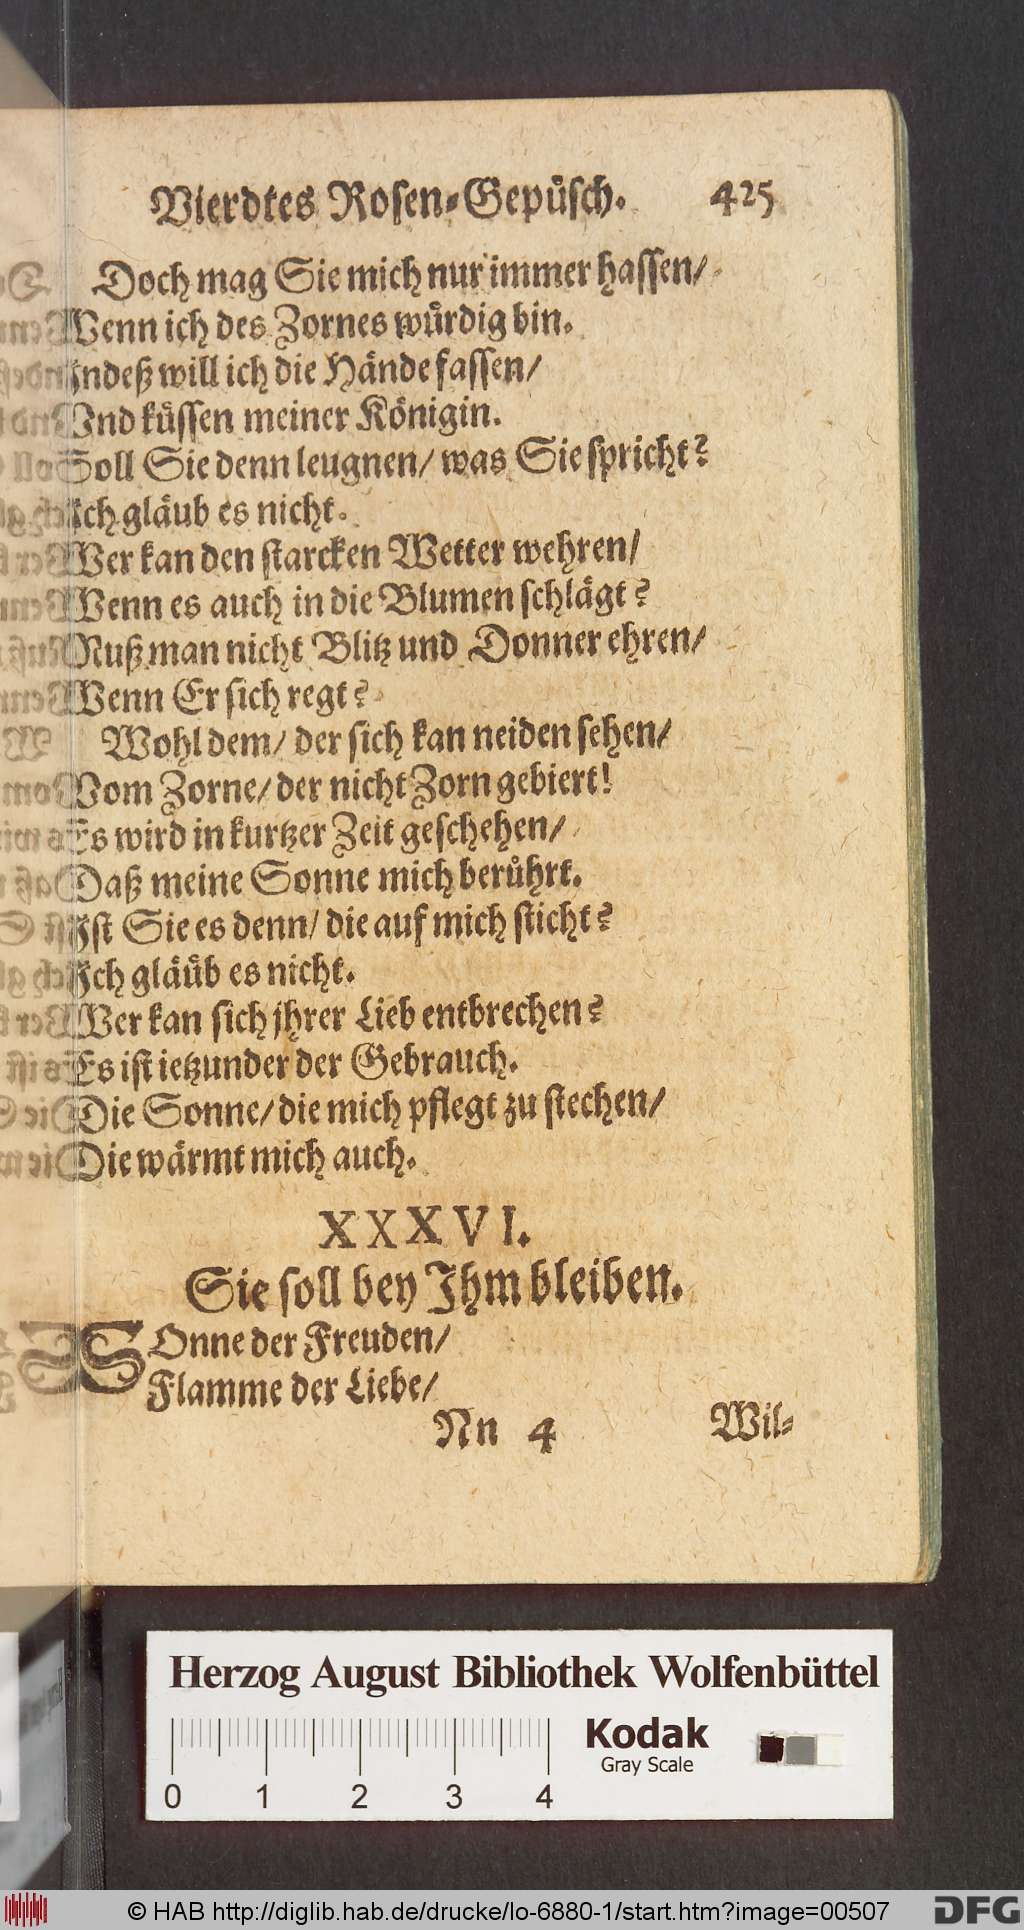 Vierdtes Rosen-Gepüsch. 425
Doch mag Sie mich nur immer hassen/
Wenn ich des Zornes würdig bin.
Indeß will ich die Hände fassen/
Vnd küssen meiner Königin.
Soll Sie denn leugnen/ was Sie spricht?
Ich gläub es nicht.
Wer kan den starcken Wetter wehren/
Wenn es auch in die Blumen schlägt?
Muß man nicht Blitz und Donner ehren/
Wenn Er sich regt?
Wohl dem/ der sich kan neiden sehen/
Vom Zorne/ der nicht Zorn gebiert!
Es wird in kurtzer Zeit geschehen/
Daß meine Sonne mich berührt.
Ist Sie es denn/ die auf mich sticht?
Ich gläüb es nicht.
Wer kan sich jhrer Lieb entbrechen?
Es ist ietzunder der Gebrauch.
Die Sonne/ die mich pflegt zu stechen/
Die wärmt mich auch.
XXXVI.
Sie soll bey Ihm bleiben.
SOnne der Freuden/
Flamme der Liebe/
Nn 4 Wil-
Herzog August Bibliothek Wolfenbüttel
Kodak
Gray Scale
0 1 2 3 4
© HAB http://diglib.hab.de/drucke/lo-6880-1/start.htm?image=00507
DFG